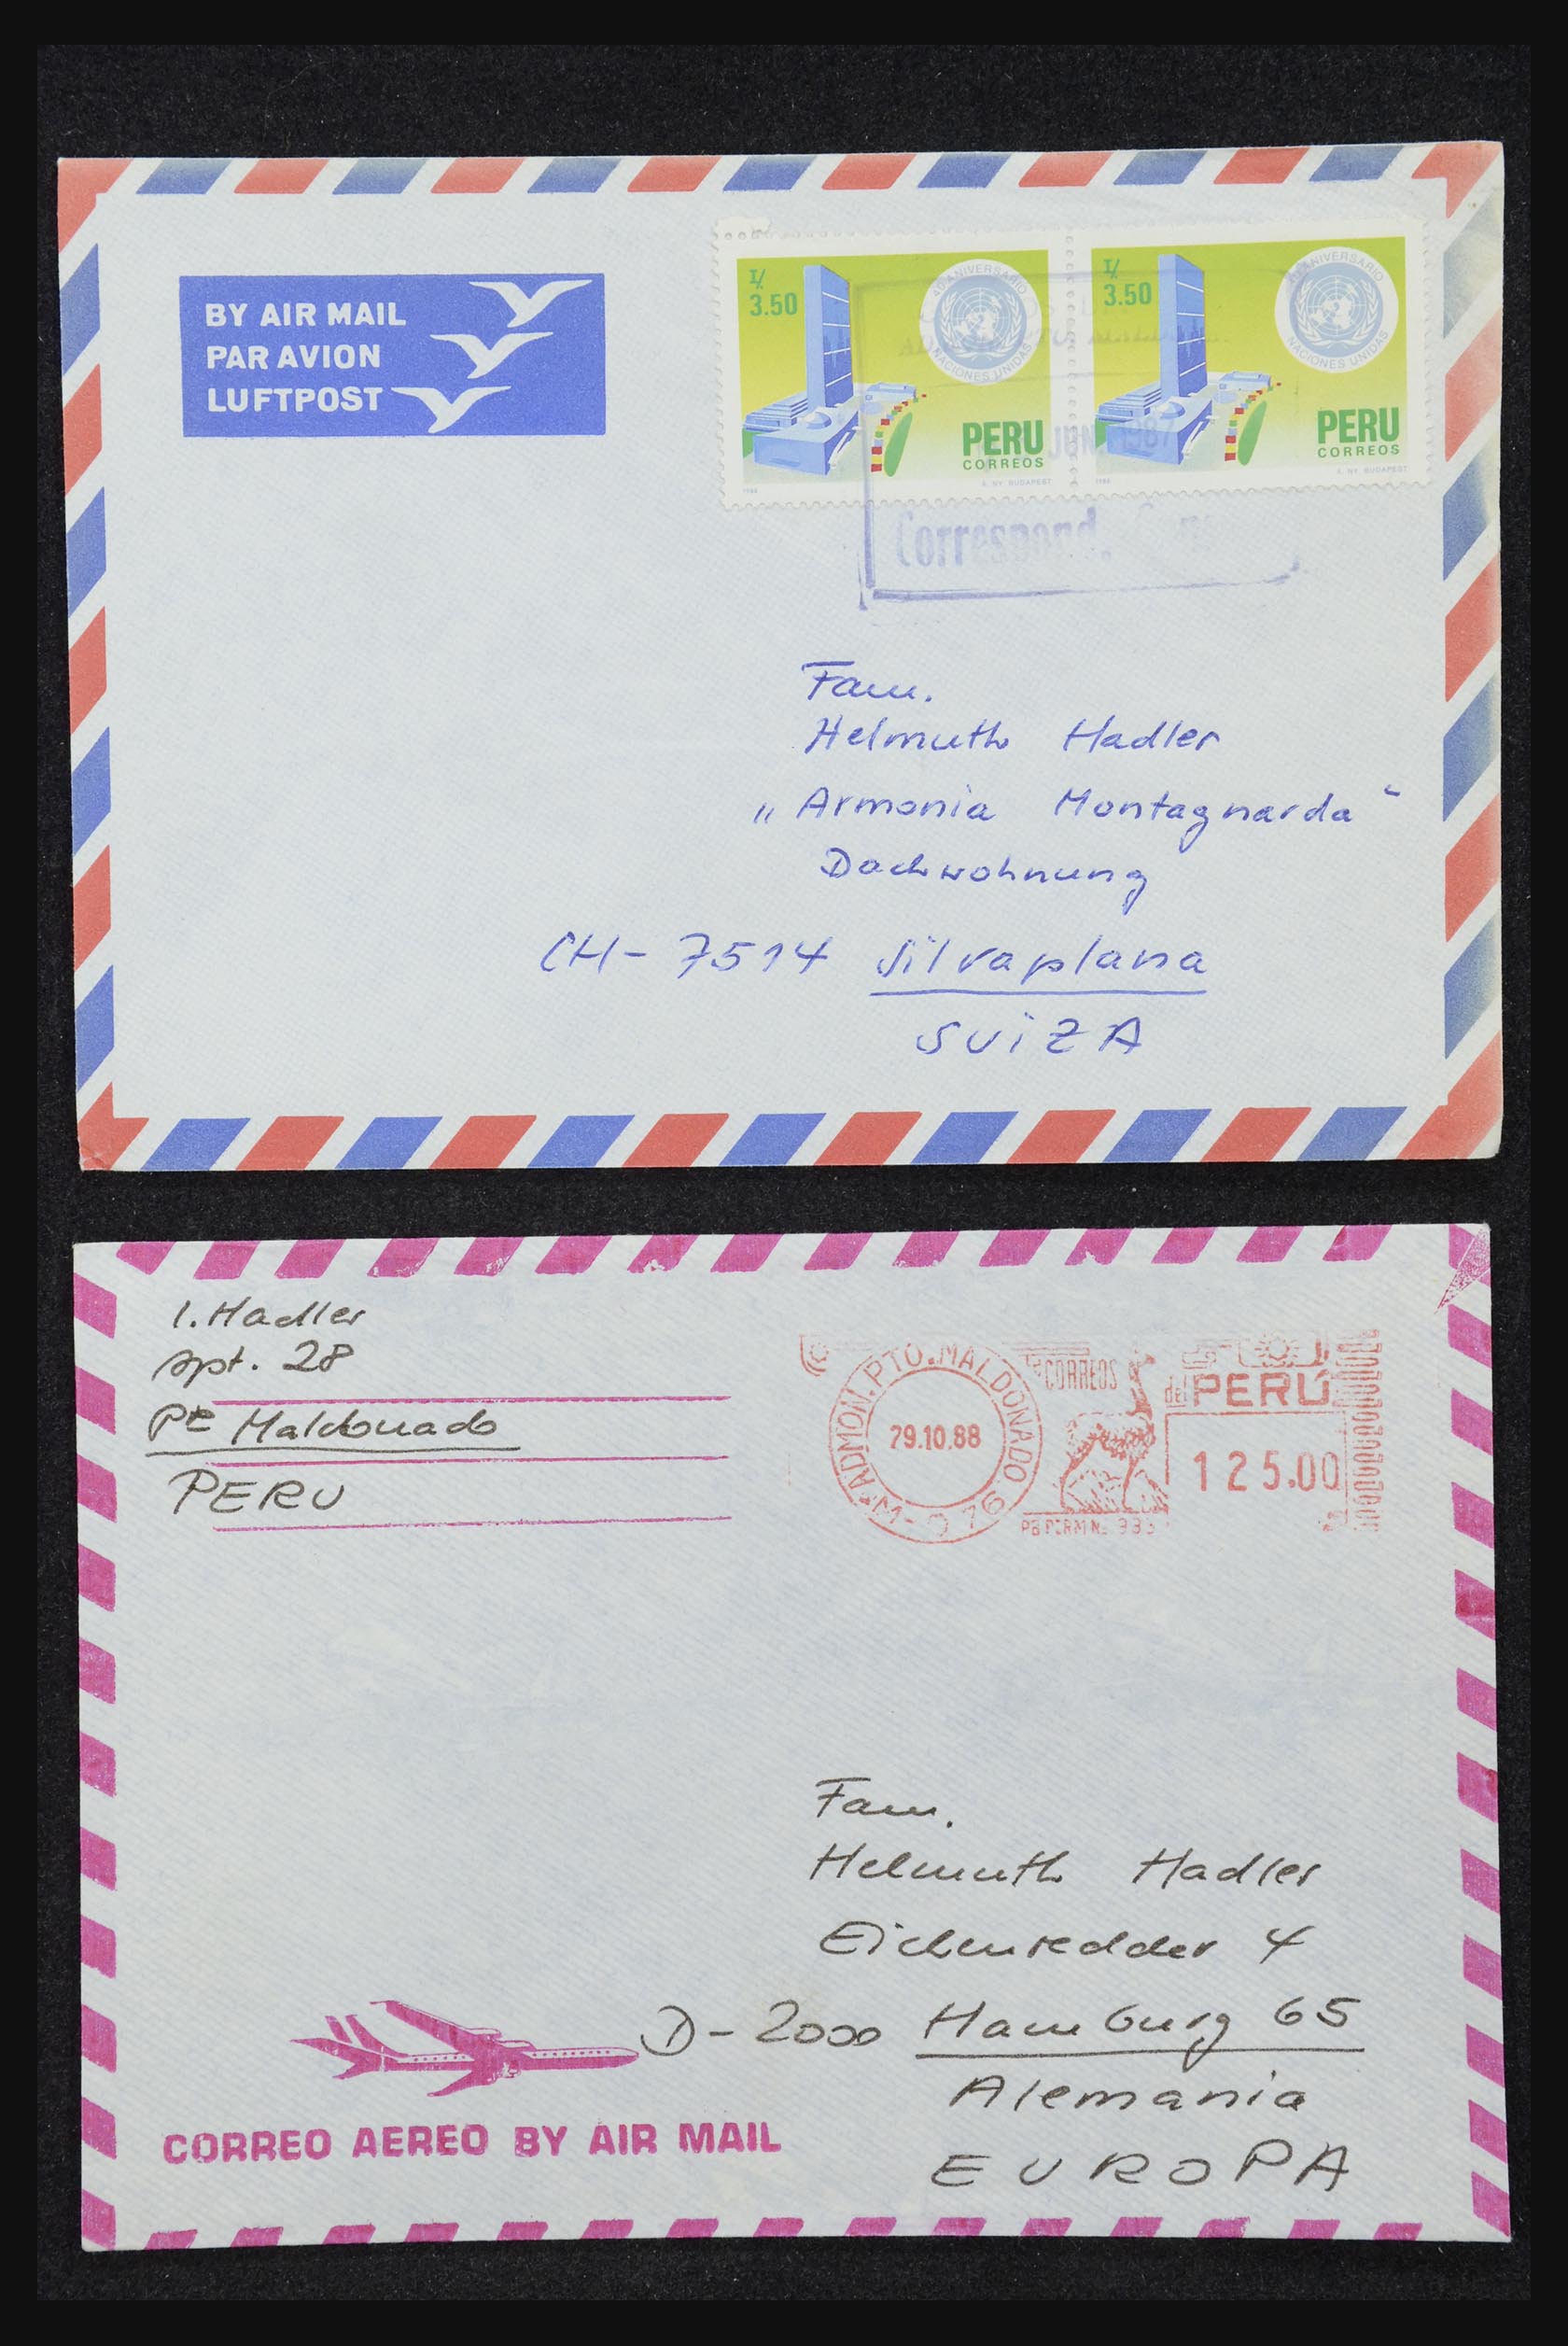 BY AIR MAIL
PAR AVION
LUFTPOST
I/.
3.50
40 ANIVERSARIO
NACIONES UNIDAS
PERU
CORREOS
1986
A. NY. BUDAPEST
I/.
3.50
40 ANIVERSARIO
NACIONES UNIDAS
PERU
CORREOS
1986
A. NY. BUDAPEST
JUN. 1987
Correspond.
Fam.
Helmuth Hadler
„Armonia Montagnarda“
Dachwohnung
CH - 7514 Silvaplana
SUiZA
I. Hadler
apt. 28
Pto Maldonado
PERU
ADMON. PTO. MALDONADO
29.10.88
CORREOS
del PERÚ
125.00
Fam.
Helmuth Hadler
Eichenredder 4
D - 2000 Hamburg 65
Alemania
EUROPA
CORREO AEREO BY AIR MAIL